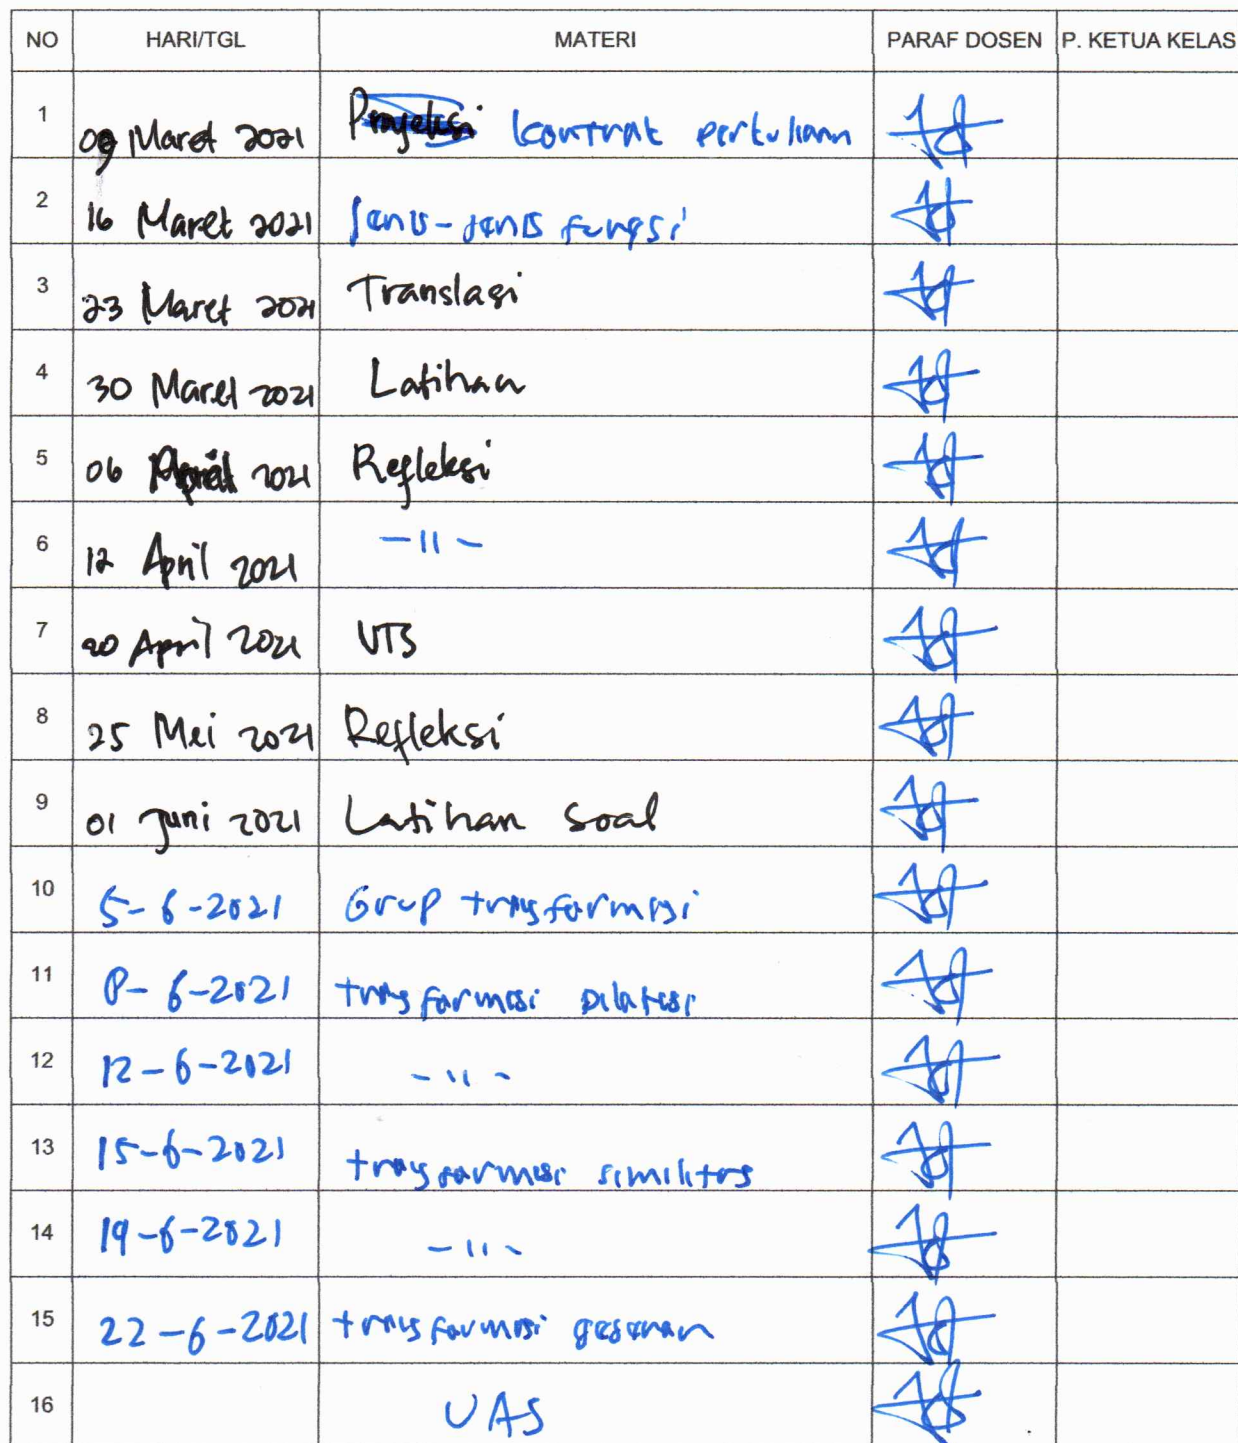 NO HARI/TGL MATERI PARAF DOSEN P. KETUA KELAS
1 09 Maret 2021 Proyeksi kontrak perkuliaan
2 16 Maret 2021 Jenis-jenis fungsi
3 23 Maret 2021 Translasi
4 30 Maret 2021 Latihan
5 06 April 2021 Refleksi
6 12 April 2021 -11-
7 20 April 2021 UTS
8 25 Mei 2021 Refleksi
9 01 Juni 2021 Latihan Soal
10 5-6-2021 Grup transformasi
11 8-6-2021 transformasi Dilatasi
12 12-6-2021 -11-
13 15-6-2021 transformasi similitas
14 19-6-2021 -11-
15 22-6-2021 transformasi geseran
16 UAS